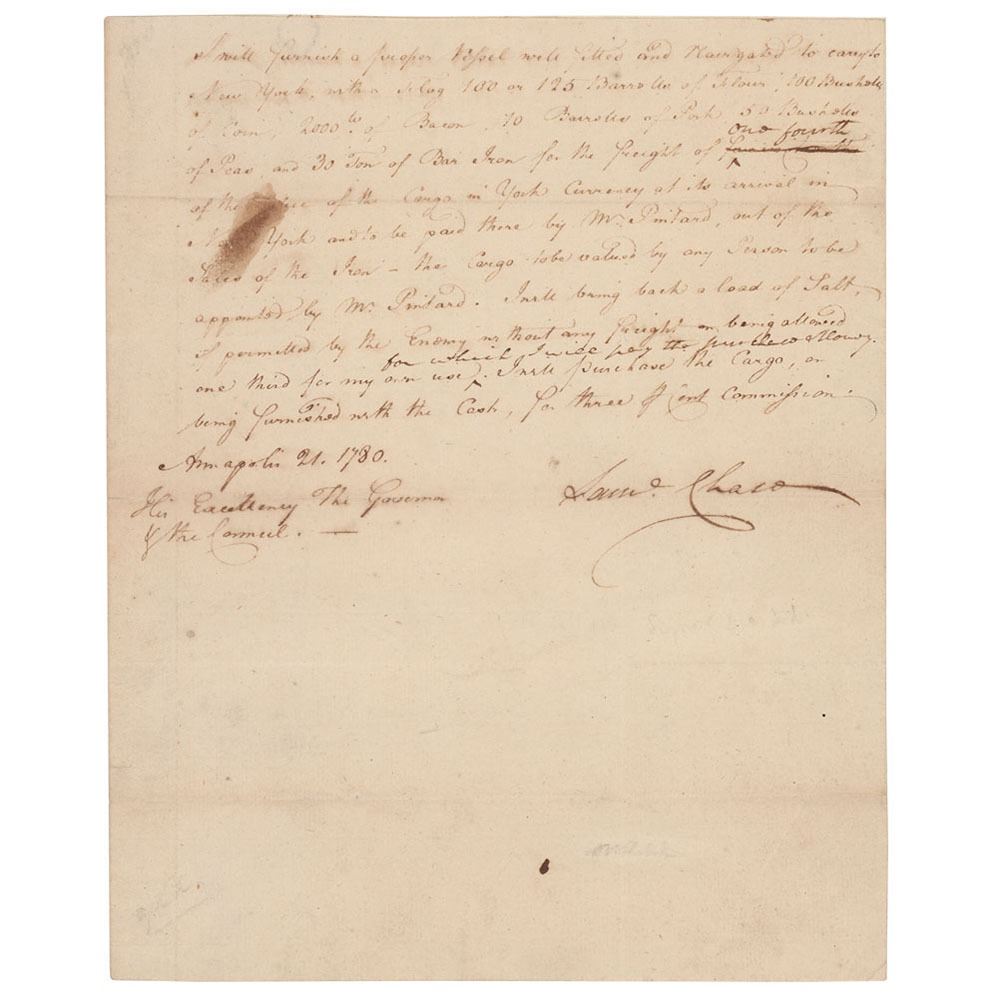 I will furnish a proper Vessel well fitted and Navigated to carry to
New York, with a Flag 100 or 125 Barrells of Flour, 100 Bushells
of Corn, 2000 lbs of Bacon, 10 Barrells of Pork, 50 Bushells
one fourth
of Peas and 30 Ton of Bar Iron for the freight of
of the of the Cargo in York Currency at its arrival in
New York and to be paid there by Mr. Pintard, out of the
Sales of the Iron – the Cargo to be valued by any Person to be
appointed by Mr. Pintard. I will bring back a load of Salt,
if permitted by the Enemy without any freight on being allowed
for which I will pay the
one third for my own use. I will purchase the Cargo, on
being furnished with the Cash, for three ⅌ Cent Commission.
Annapolis 21. 1780.
Saml. Chase
His Excellency The Governor
& the Council. —